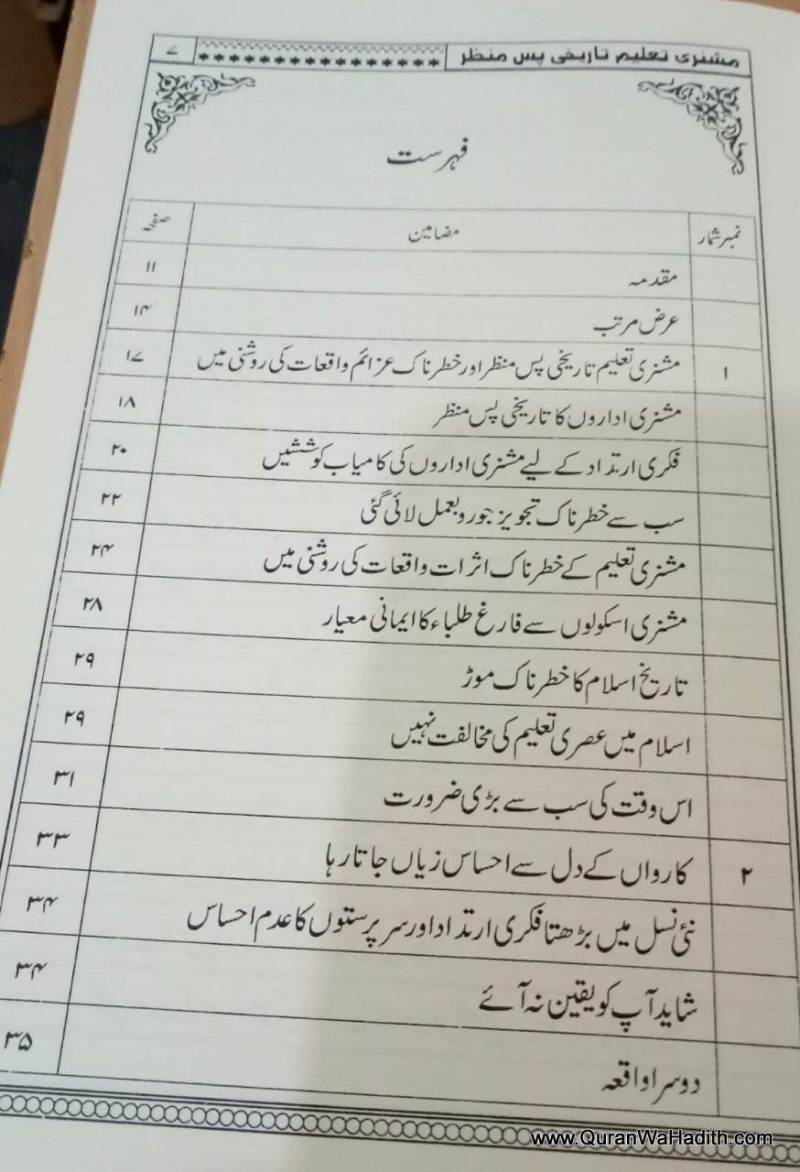 مشنری تعلیم تاریخی پس منظر ۷
فہرست
نمبر شمار مضامین صفحہ
مقدمہ ۱۱
عرض مرتب ۱۴
۱ مشنری تعلیم تاریخی پس منظر اور خطرناک عزائم واقعات کی روشنی میں ۱۷
مشنری اداروں کا تاریخی پس منظر ۱۸
فکری ارتداد کے لیے مشنری اداروں کی کامیاب کوششیں ۲۰
سب سے خطرناک تجویز جو روبعمل لائی گئی ۲۲
مشنری تعلیم کے خطرناک اثرات واقعات کی روشنی میں ۲۴
مشنری اسکولوں سے فارغ طلباء کا ایمانی معیار ۲۸
تاریخ اسلام کا خطرناک موڑ ۲۹
اسلام میں عصری تعلیم کی مخالفت نہیں ۲۹
اس وقت کی سب سے بڑی ضرورت ۳۱
۲ کارواں کے دل سے احساس زیاں جاتا رہا ۳۳
نئی نسل میں بڑھتا فکری ارتداد اور سرپرستوں کا عدم احساس ۳۴
شاید آپ کو یقین نہ آئے ۳۴
دوسرا واقعہ ۳۵
www.QuranWaHadith.com